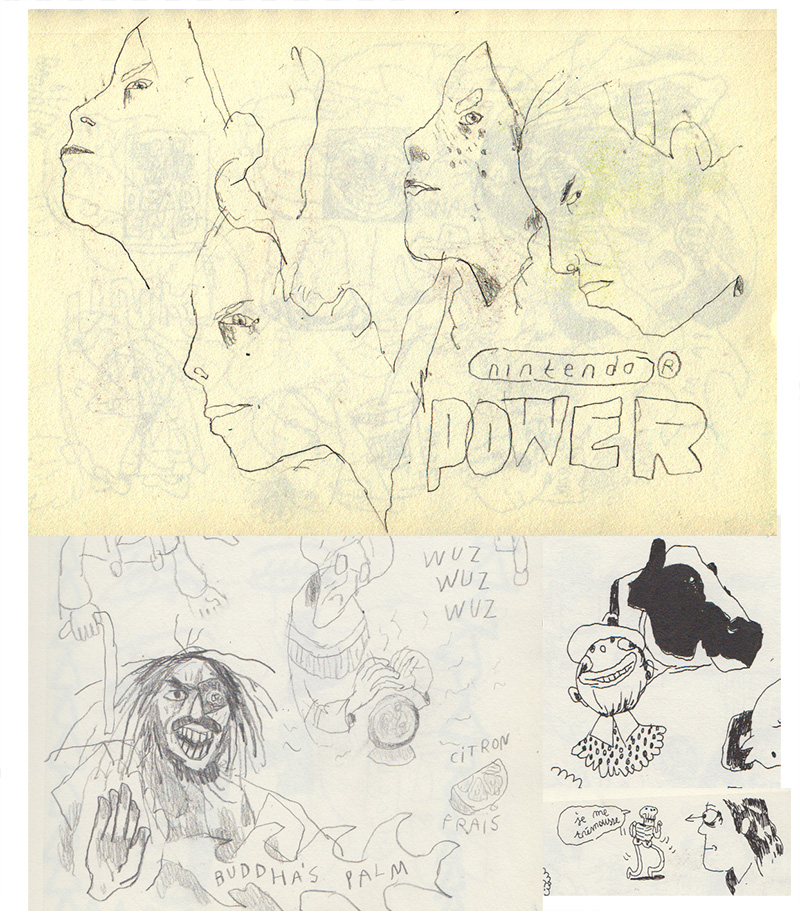 nintendo®
POWER
WUZ
WUZ
WUZ
CITRON
FRAIS
BUDDHA'S PALM
je me
trémousse